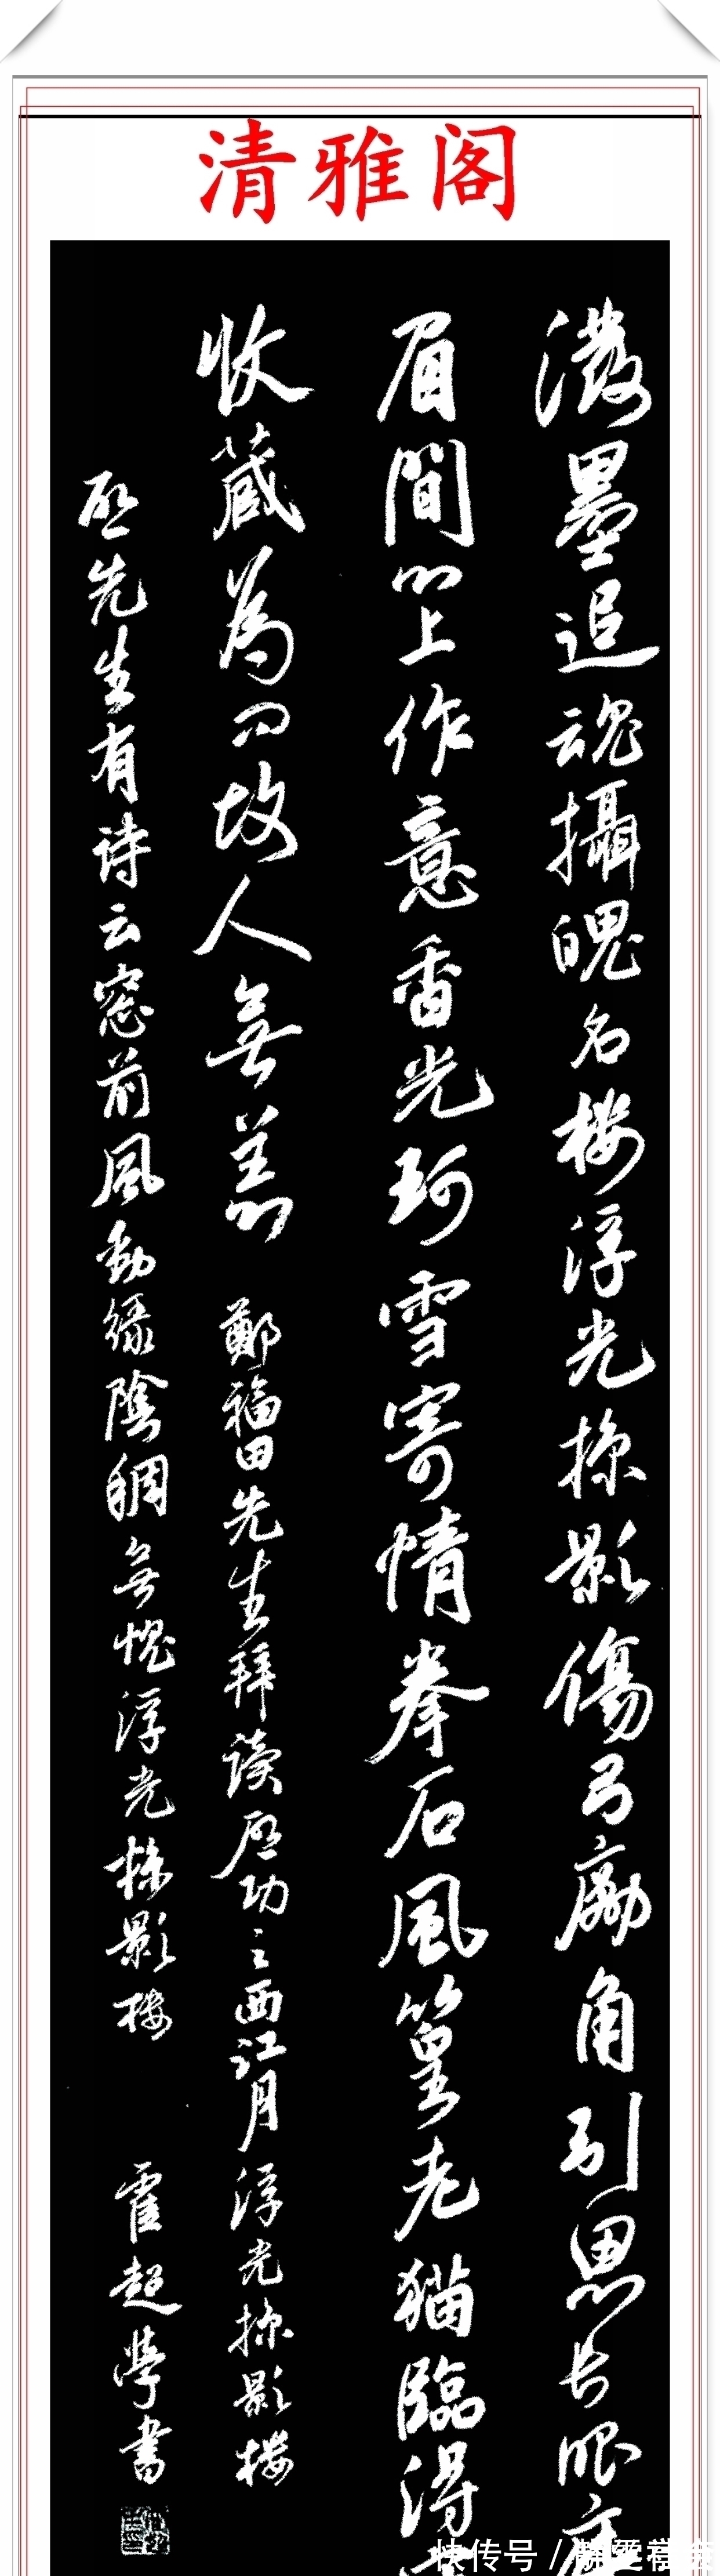 清雅阁
潑墨追魂攝魄名楼浮光掠影傷弓勵角引思长眼底
眉間心上作意香光珂雪寄情拳石風篁老猫臨得
收藏為问故人無恙 鄭福田先生拜读启功之西江月浮光掠影楼
启先生有诗云窓前風動緑陰稠無愧浮光掠影楼 霍超學書
快传号 /